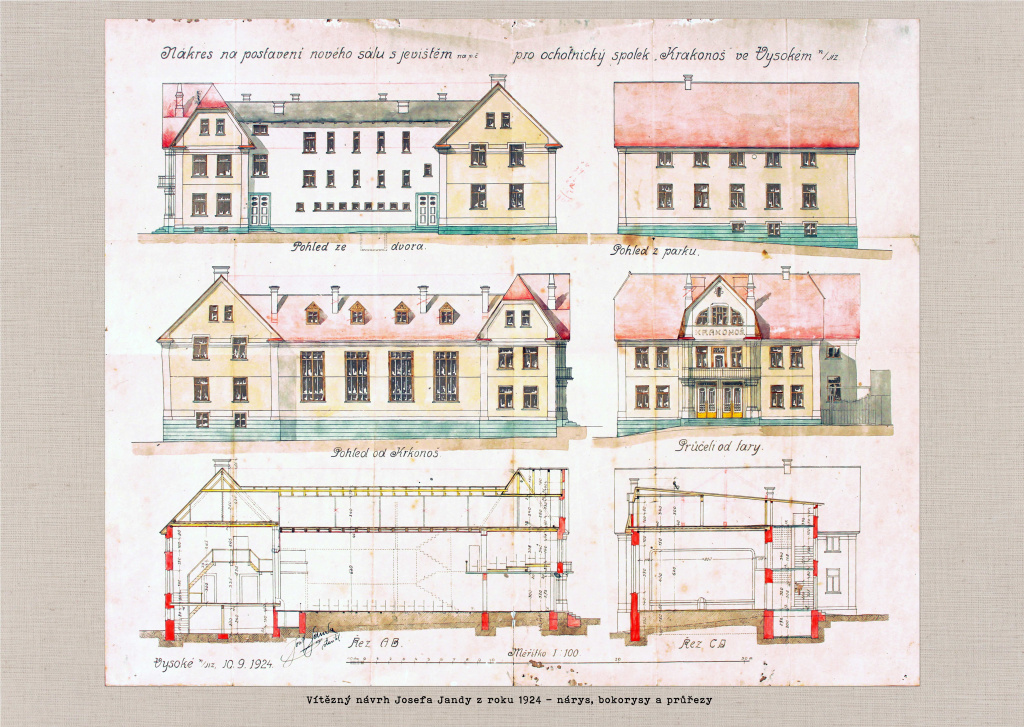 Nákres na postavení nového sálu s jevištěm pro ochotnický spolek „Krakonoš ve Vysokém n/Jiz.
Pohled ze dvora.
Pohled z parku.
KRAKONOŠ
Pohled od Krkonoš
Průčelí od fary.
Řez AB.
Řez CD
Měřítko 1:100
Vysoké n/Jiz. 10.9.1924.
Vítězný návrh Josefa Jandy z roku 1924 – nárys, bokorysy a průřezy